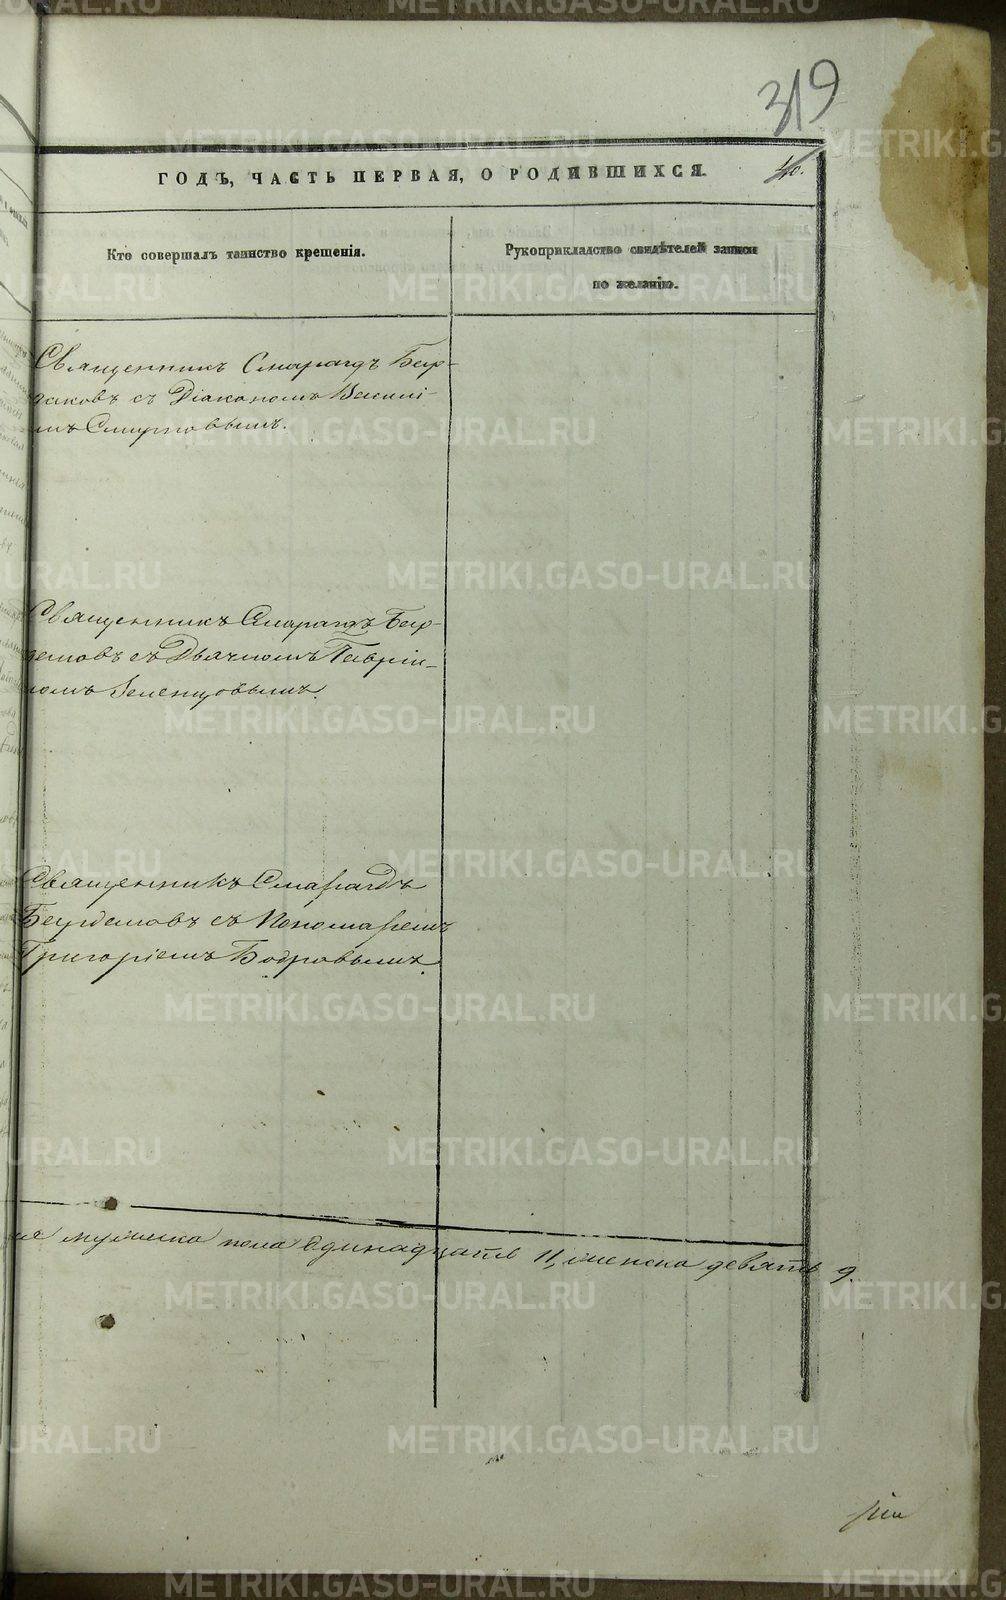 319
ГОДЪ, ЧАСТЬ ПЕРВАЯ, О РОДИВШИХСЯ.
Кто совершалъ таинство крещенія.
Рукоприкладство свидѣтелей записи
по желанію.
Священникъ Смарагдъ Бир-
съ Діакономъ Василі-
Смирновымъ.
Священникъ Смарагдъ
съ Дьячкомъ Гаврiи-
ломъ Зеленцовымъ.
Священникъ Смарагдъ
съ Пономаремъ
Григоріемъ Бодровымъ.
мужеска пола одинадцать 11, женска девять 9.
METRIKI.GASO-URAL.RU